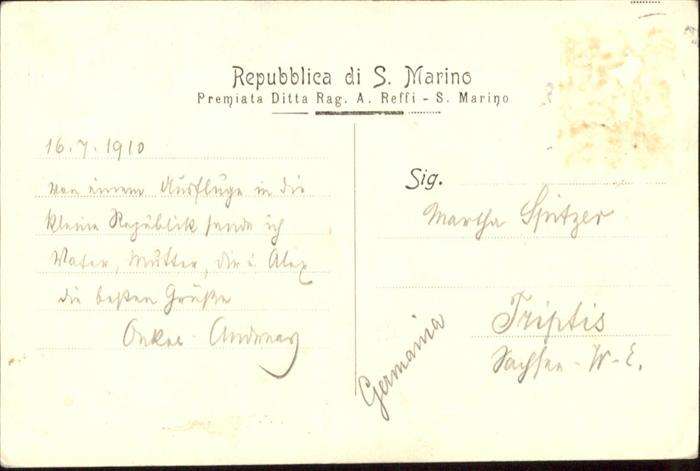 Repubblica di S. Marino
Premiata Ditta Rag. A. Reffi - S. Marino
16.7.1910
Von einem Ausfluge in die
kleine Republik sende ich
Vater, Mutter, dir u. Alex
die besten Grüße
Onkel Andreas
Sig.
Martha Spitzer
Triptis
Sachsen-W-E.
Germania